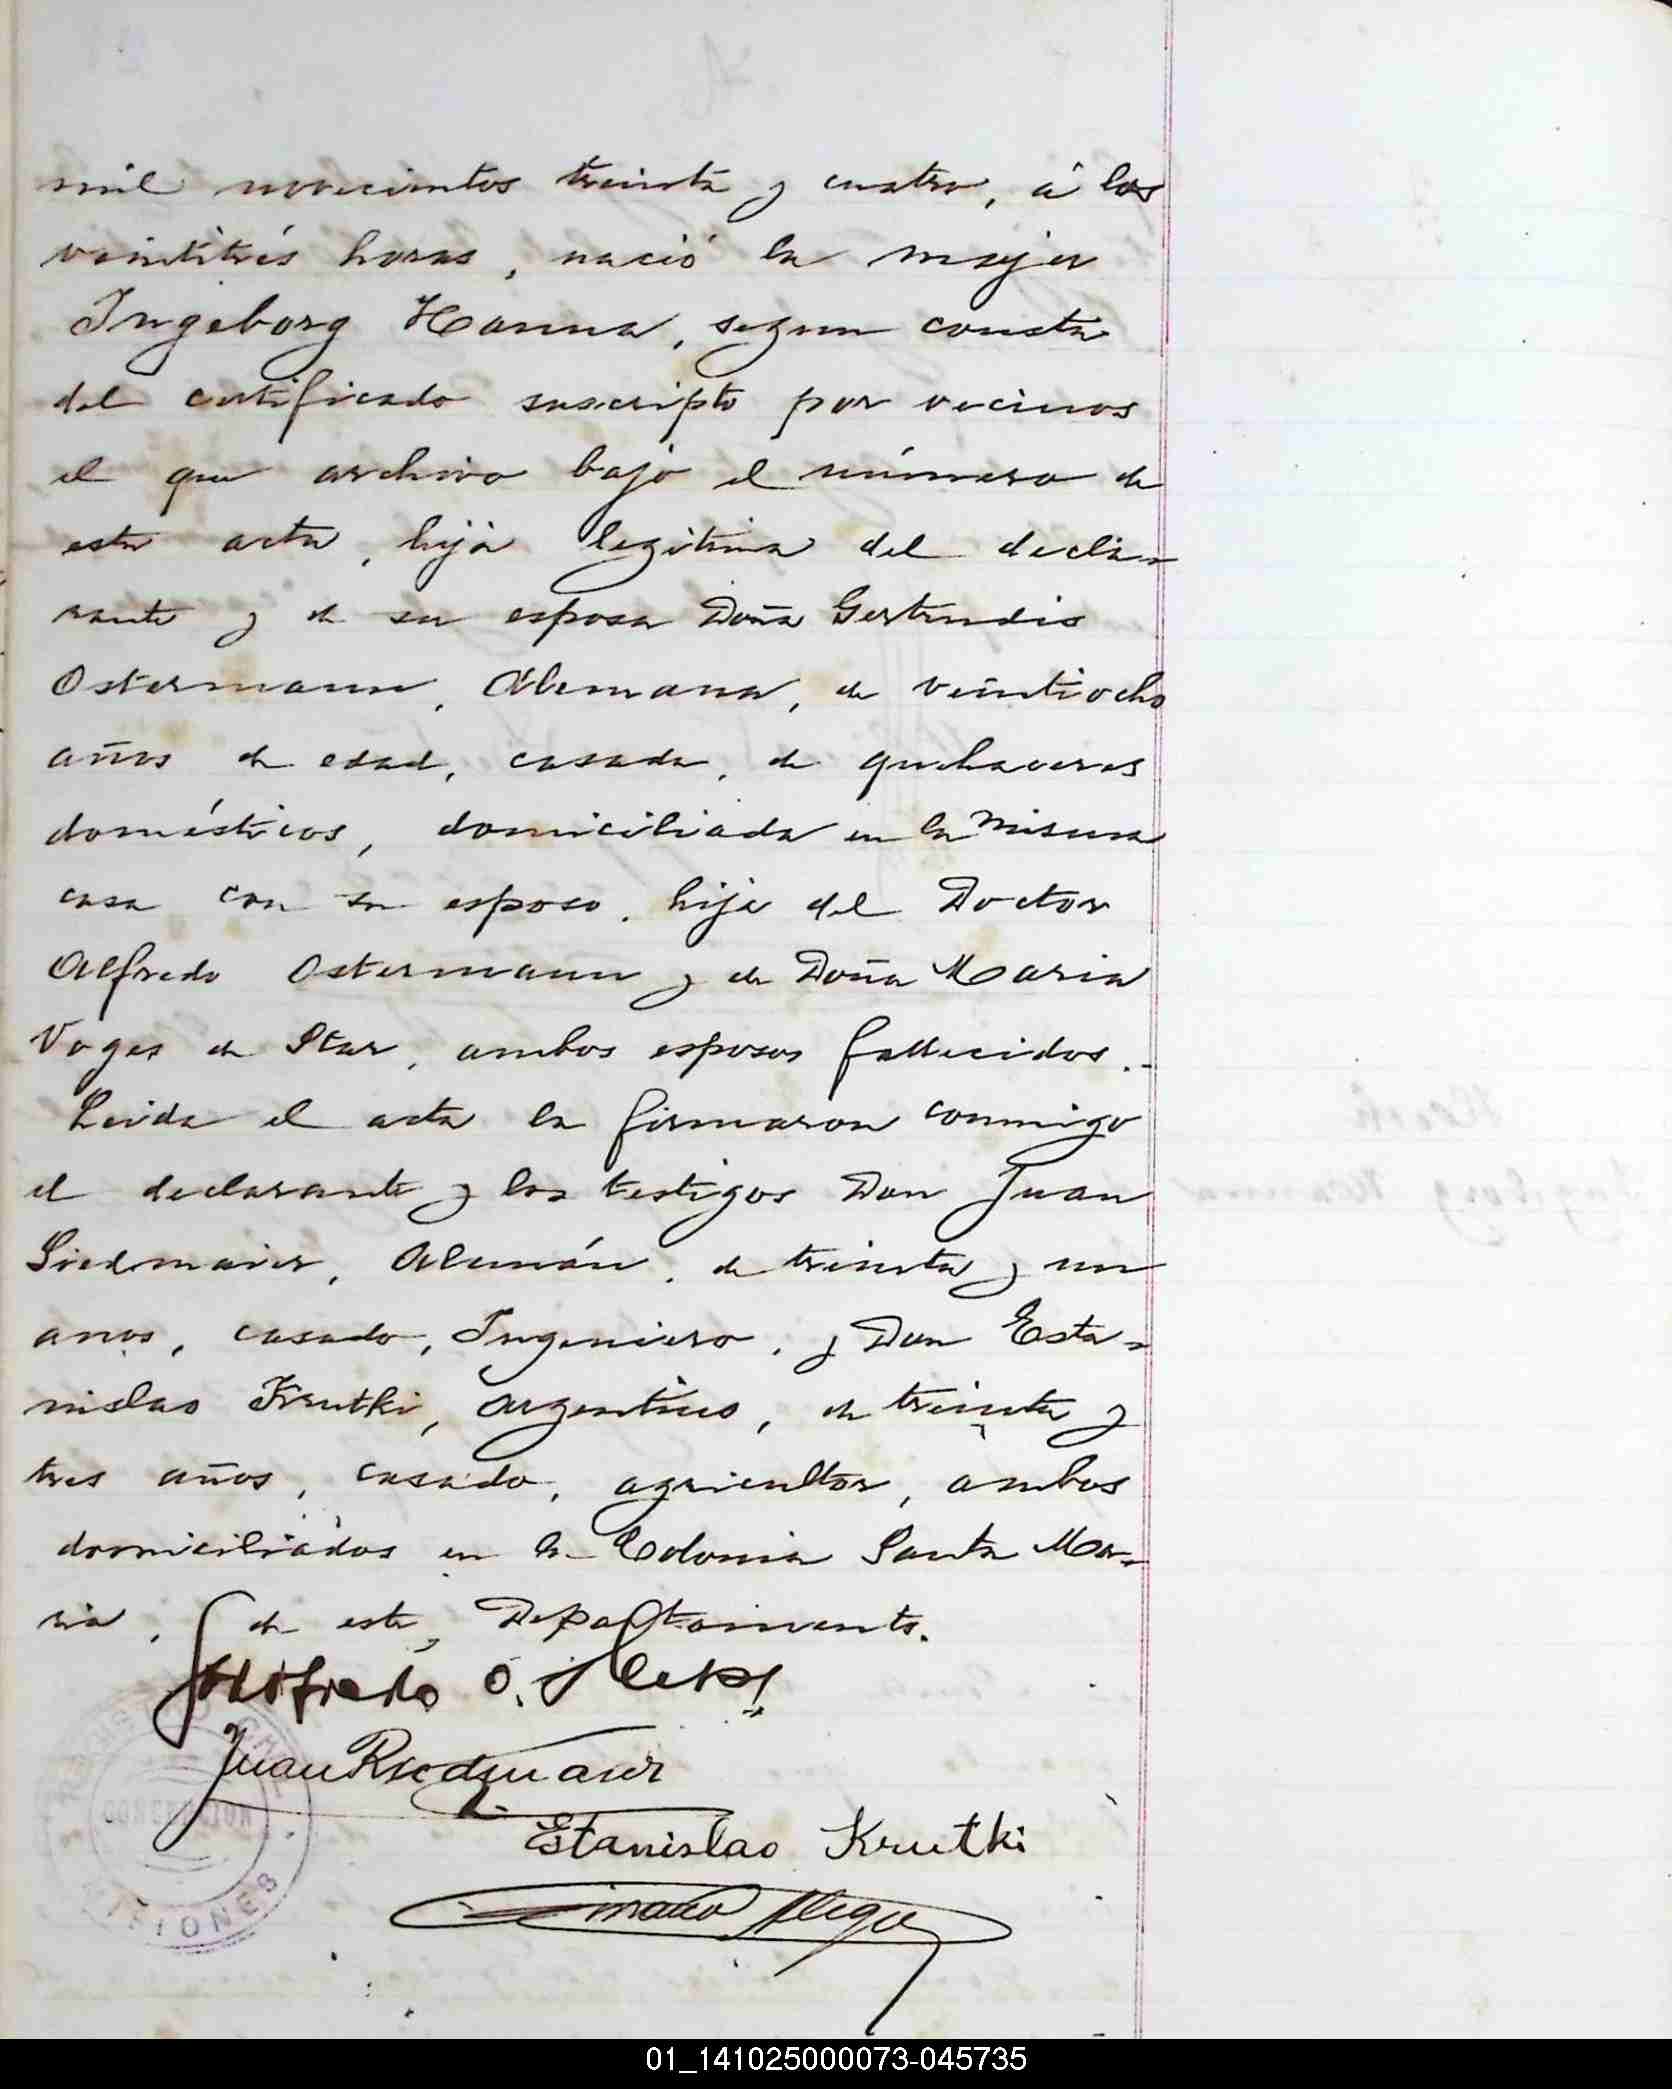 mil novecientos treinta y cuatro, á las
veintitrés horas, nació la mujer
Ingeborg Hanna, segun consta
del certificado suscripto por vecinos
el que archivo bajo el número de
esta acta, hija legitima del decla-
rante y de su esposa Doña Gertrudis
Ostermann, Alemana, de veintiocho
años de edad, casada, de quehaceres
domésticos, domiciliada en la misma
casa con su esposo, hija del Doctor
Alfredo Ostermann y de Doña Maria
Voges de Star, ambos esposos fallecidos.-
Leida el acta la firmaron conmigo
el declarante y los testigos Don Juan
Siedmaier, Alemán, de treinta y un
anos, casado, Ingeniero, y Don Esta-
nislao Krutki, argentino, de treinta y
tres años, casado, agricultor, ambos
domiciliados en la Colonia Santa Ma-
ria, de este Departamento.
Juan Riedmaier
Estanislao Krutki
MISIONES
01_141025000073-045735